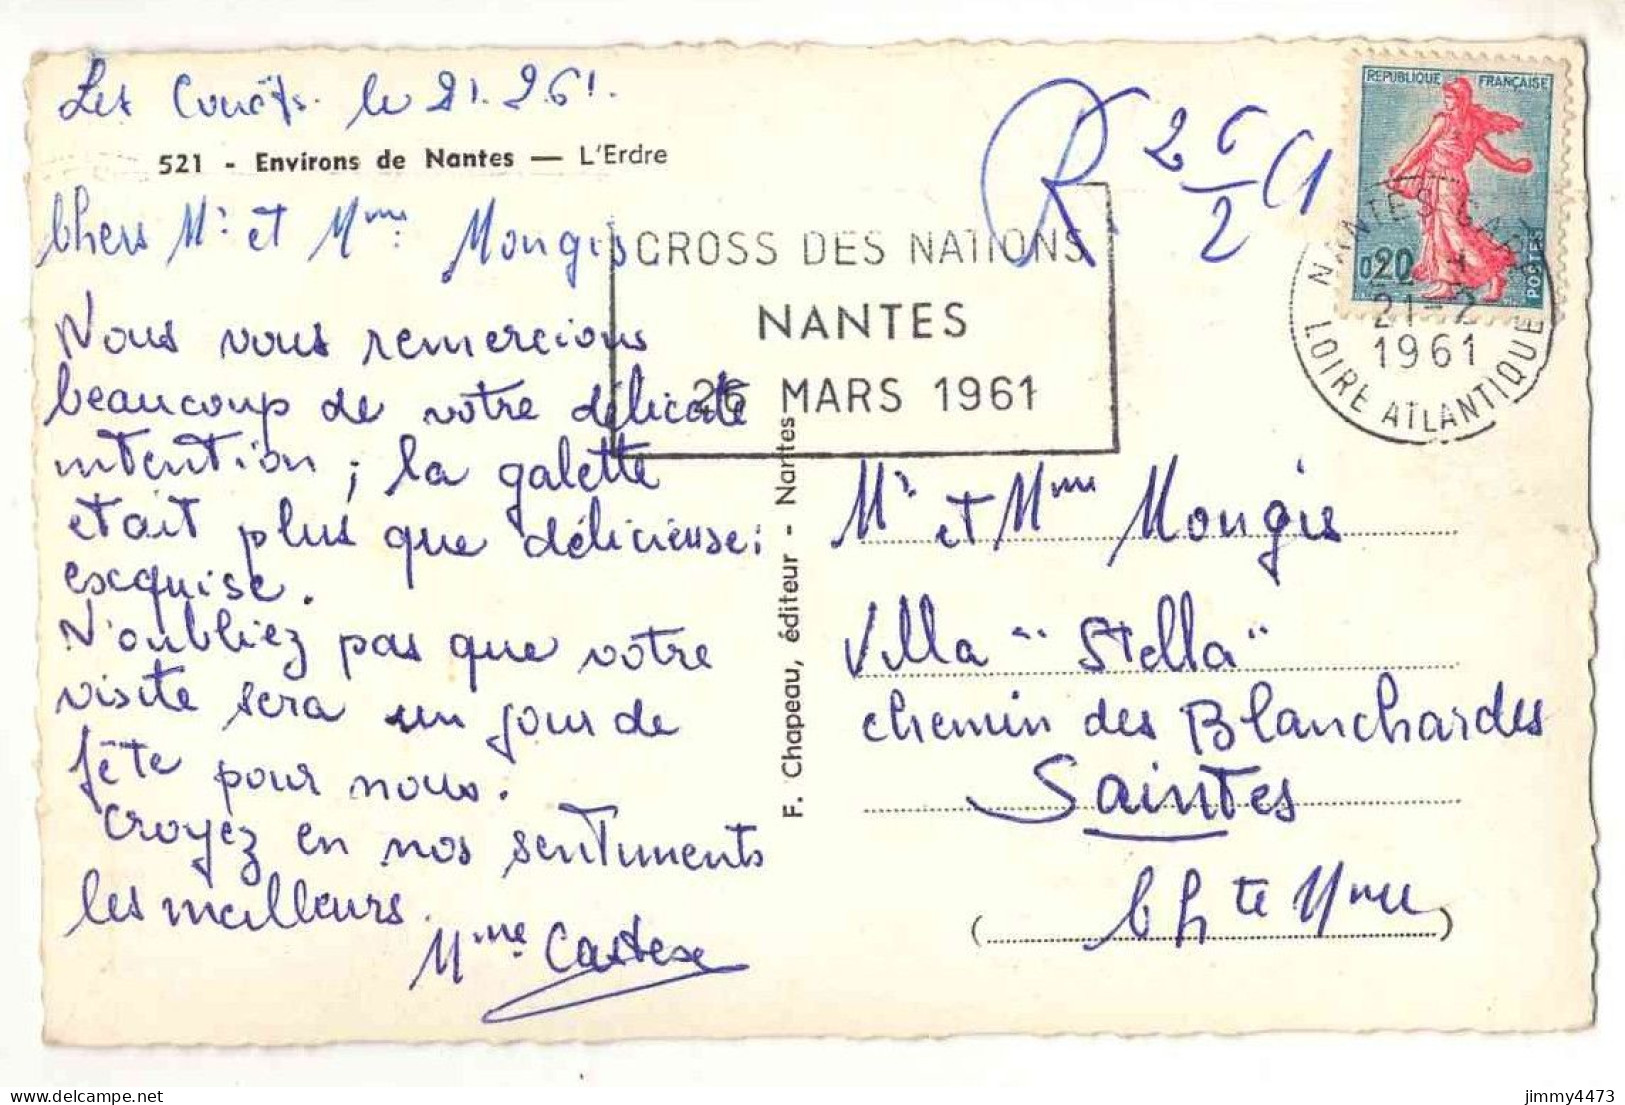 Les Couëts. le 21.2.61.
521 - Environs de Nantes — L'Erdre
Chers Mr. et Mme. Mongis
Nous vous remercions
beaucoup de votre délicate
intention ; la galette
etait plus que délicieuse :
exquise.
N'oubliez pas que votre
visite sera un jour de
fête pour nous.
Croyez en nos sentiments
les meilleurs.
Mme Castex
F. Chapeau, éditeur - Nantes
CROSS DES NATIONS
NANTES
26 MARS 1961
R 26/2 61
REPUBLIQUE FRANÇAISE
0,20
POSTES
NANTES GARE
21-2
1961
LOIRE ATLANTIQUE
Mr et Mme Mongis
Villa "Stella"
chemin des Blanchardes
Saintes
(Ch te Mme)
delcampe.net
jimmy4473